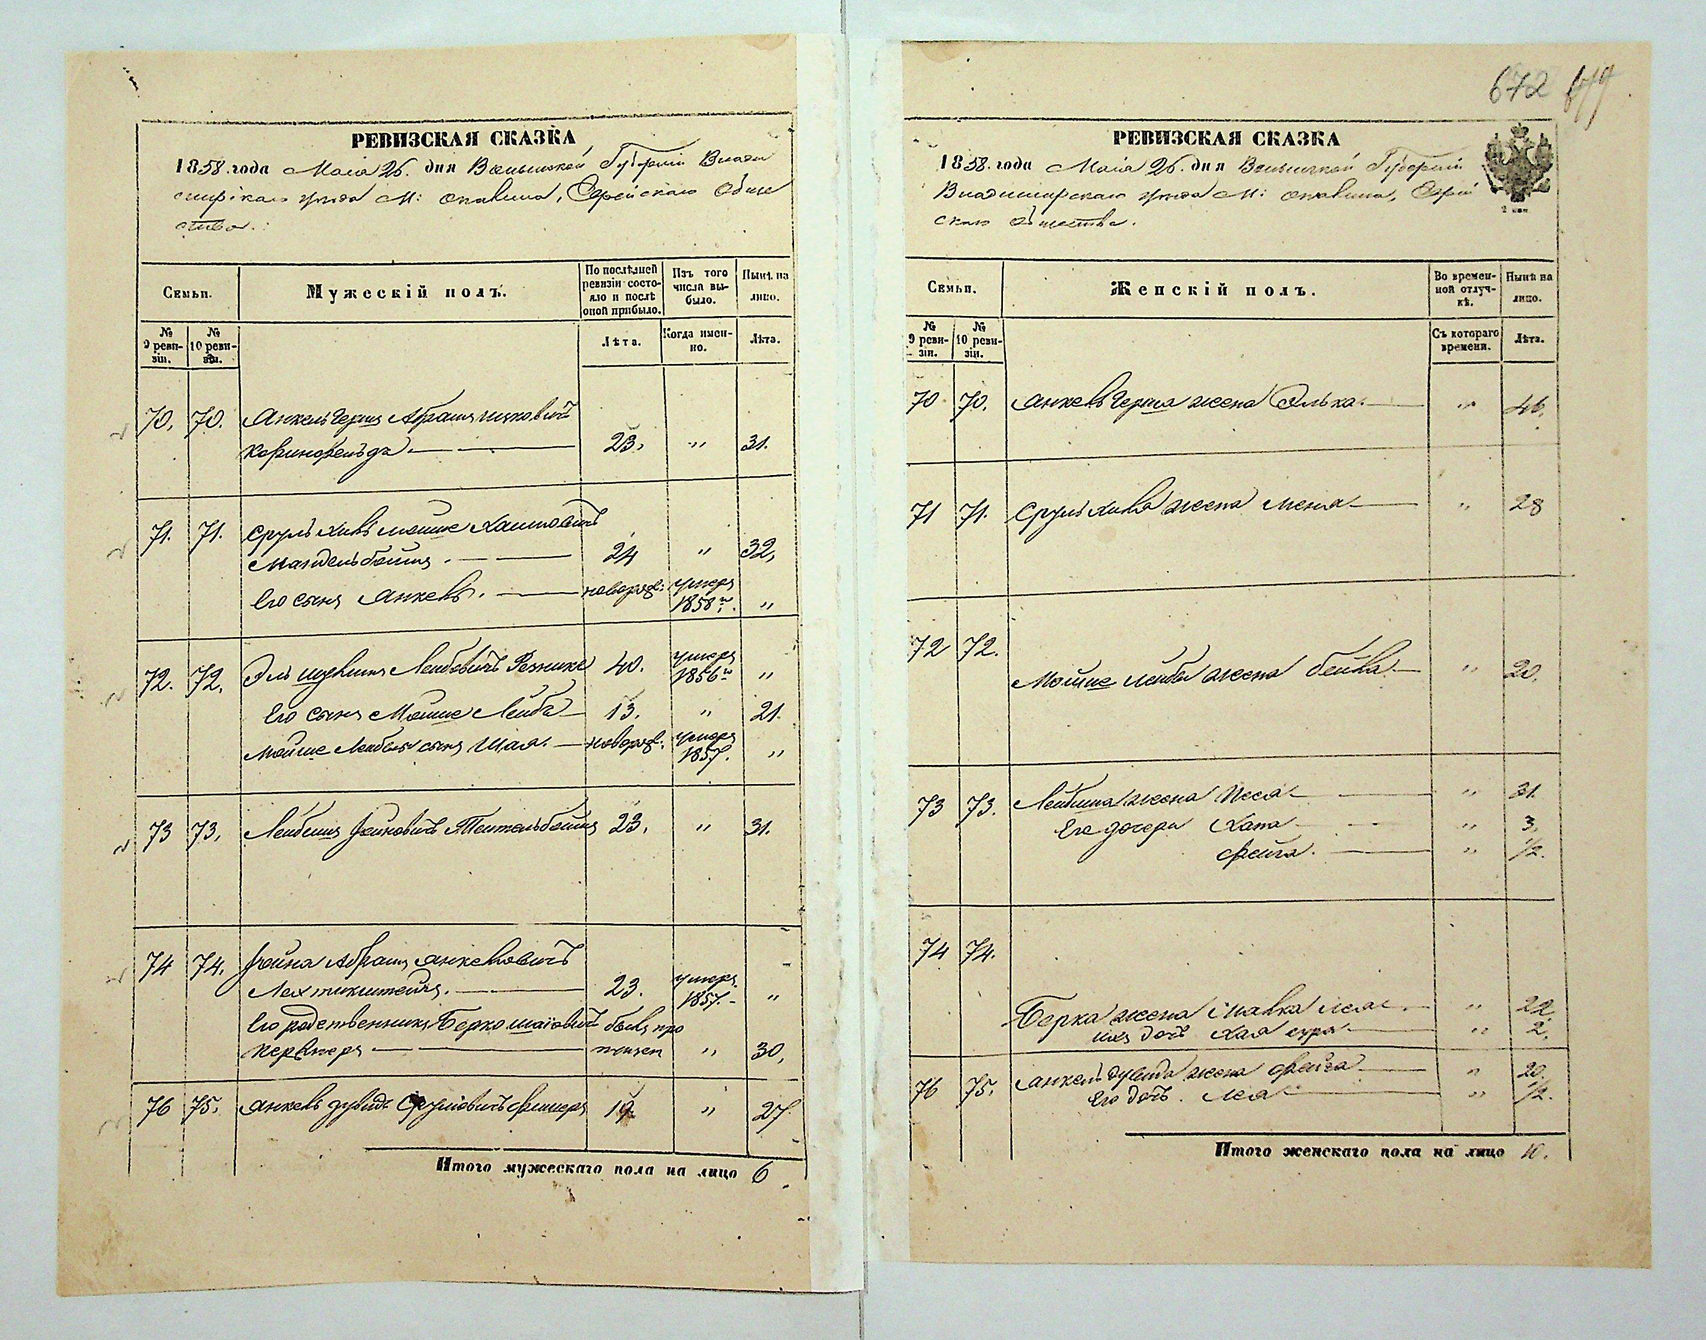 РЕВИЗСКАЯ СКАЗКА
1858. года Маія 26. дня Волынской Губерніи Влади
мірскаго уезда М: Опалина, Еврейскаго Обще
ства.
Семьи.
Мужескій полъ.
По послѣдней ревизіи состояло и послѣ оной прибыло.
Изъ того числа выбыло.
Нынѣ на лицо.
№ 9 ревизіи.
№ 10 ревизіи.
Лѣта.
Когда именно.
Лѣта.
70. 70. Янкель Гершъ Абрамъ Ицковичъ
Корнфельдъ. 23. " 31.
71. 71. Сруль Хаимовичъ
Мандельбоймъ. 24 " 32.
Его сынъ Янкель. новорож: умеръ
1858 г. "
72. 72. Лейбовичъ Резникъ 40. умеръ
1856 г "
Его сынъ Мойше Лейба 13. " 21.
Мойше Лейбы сынъ Шая. новорож: умеръ
1857. "
73 73. Лейбишъ Тейтельбоймъ 23. " 31.
74 74. Фойна Абрамъ Янкелiовичъ
23. умеръ
1857. "
Его родственникъ Берко Шаiовичъ былъ про
Перльмеръ пущен " 30.
76 75. Янкель Дувидъ Срулiовичъ Фишеръ 19. " 27.
Итого мужескаго пола на лицо 6
672
РЕВИЗСКАЯ СКАЗКА
1858. года Маія 26. дня Волынской Губерніи
Владимірскаго уезда М: Опалина, Еврей
скаго Общества.
2 коп.
Семьи.
Женскій полъ.
Во временной отлучкѣ.
Нынѣ на лицо.
№ 9 ревизіи.
№ 10 ревизіи.
Съ котораго времени.
Лѣта.
70 70. Янкель Герша жена Элька. " 46.
71 71. Сруль жена " 28
72 72.
Мойше Лейбы жена Бейла. " 20.
73 73. Лейбиша жена Песя " 31.
Его дочери Хана " 3.
Фейга. " 1/2.
74 74.
Берка жена " 22.
ихъ дочь Хая Сура " 2.
76 75. Янкель Дувида жена Фейга " 20.
Его дочь. Лея " 1/2.
Итого женскаго пола на лицо 10.